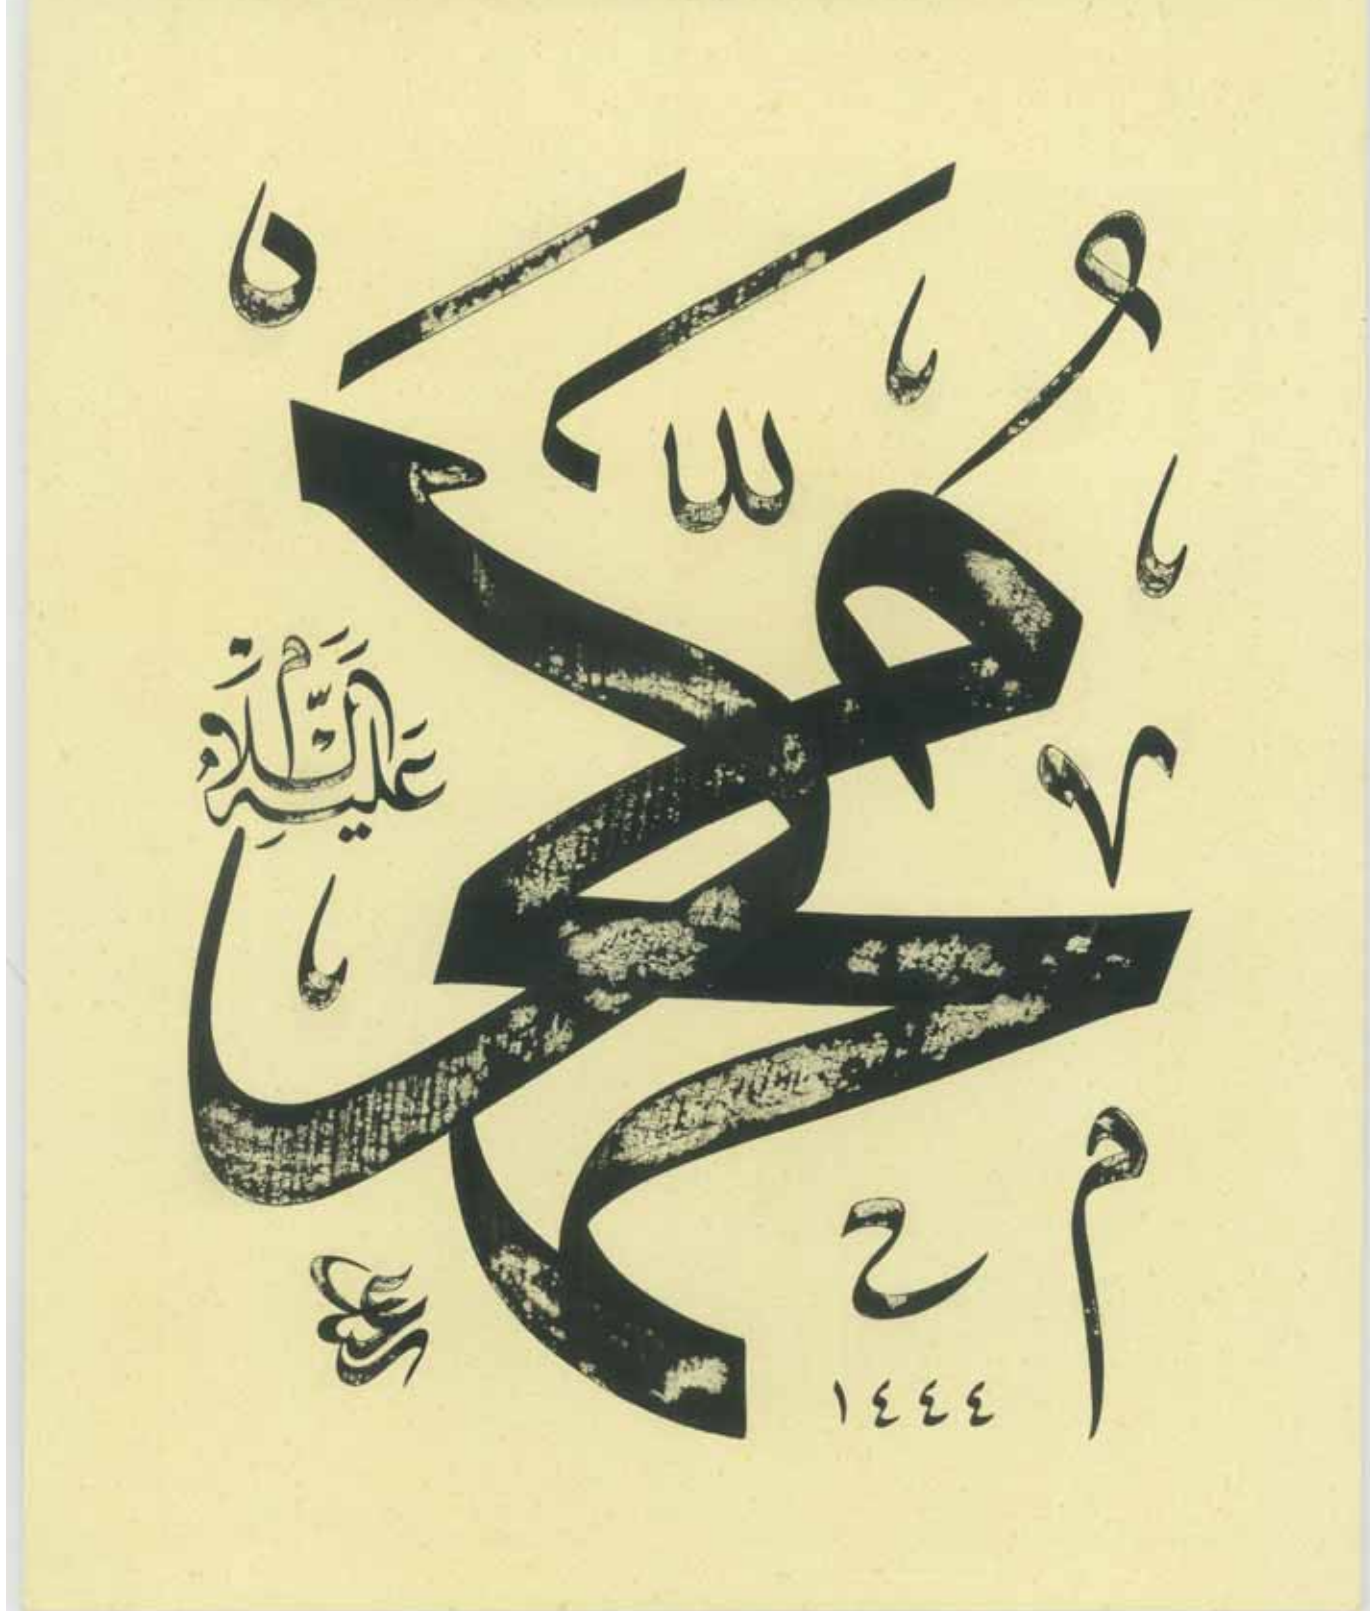 مُحَمَّد
عَلَيْهِ السَّلَام
م ح
١٤٤٤